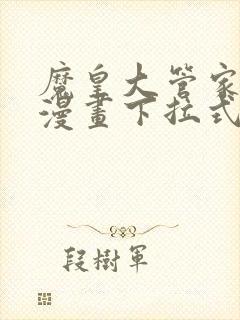 魔皇大管家
漫畫下拉式
段樹軍